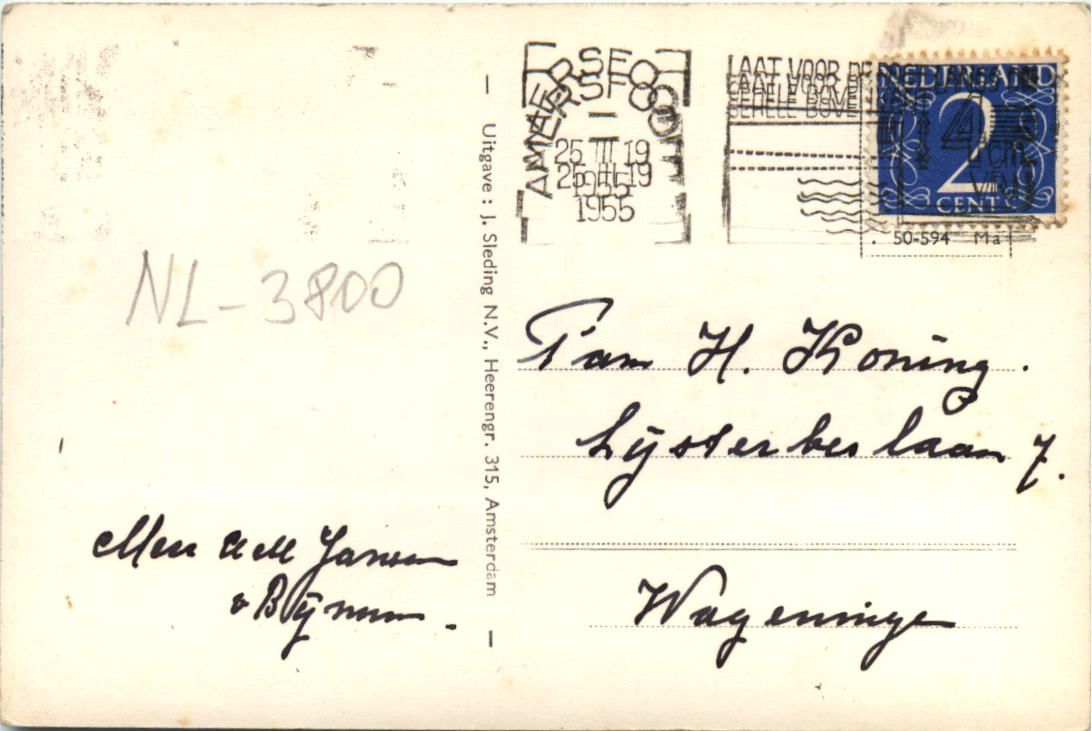 AMERSFOORT
25 III 19
1955
LAAT VOOR DE
GEHELE BOVE
NEDERLAND
2
CENT
50-594 Ma
NL-3800
Uitgave : J. Sleding N.V., Heerengr. 315, Amsterdam
Fam H. Koning.
Lijsterbeslaan 7.
Wageningen
Jansen
v Bijnum.